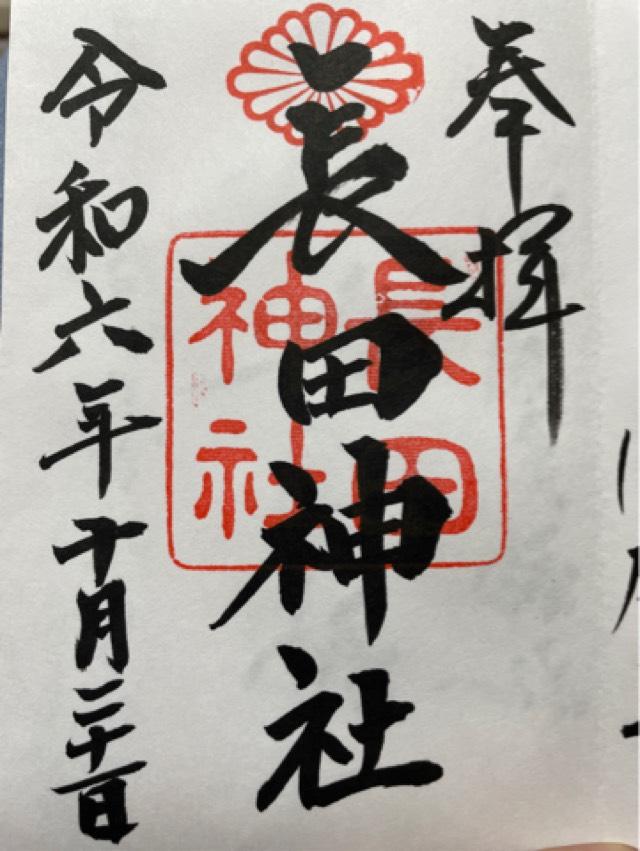 奉拝
長田神社
長田
神社
令和六年十月二十一日